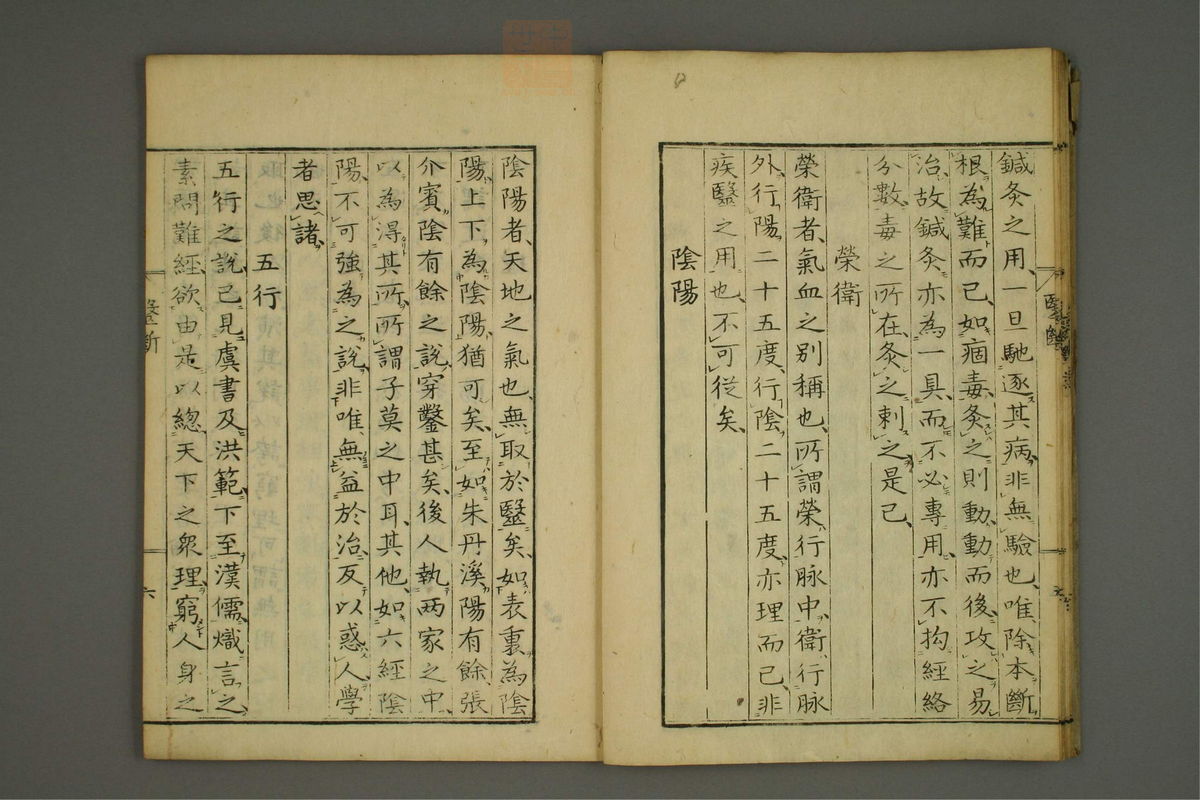 鍼灸之用一旦馳逐其病非無驗也唯除本斷
根為難而已如痼毒灸之則動動而後攻之易
治故鍼灸亦為一具而不必專用亦不拘經絡
分數毒之所在灸之刺之是已
榮衛
榮衛者氣血之別稱也所謂榮行脉中衛行脉
外行陽二十五度行陰二十五度亦理而已非
疾醫之用也不可從矣
陰陽
陰陽者天地之氣也無取於醫矣如表裏為陰
陽上下為陰陽猶可矣至如朱丹溪陽有餘張
介賓陰有餘之說穿鑿甚矣後人執兩家之中
以為得其所所謂子莫之中耳其他如六經陰
陽不可強為之說非唯無益於治反以惑人學
者思諸
五行
五行之說已見虞書及洪範下至漢儒熾言之
素問難經欲由是以總天下之衆理窮人身之
醫斷
六